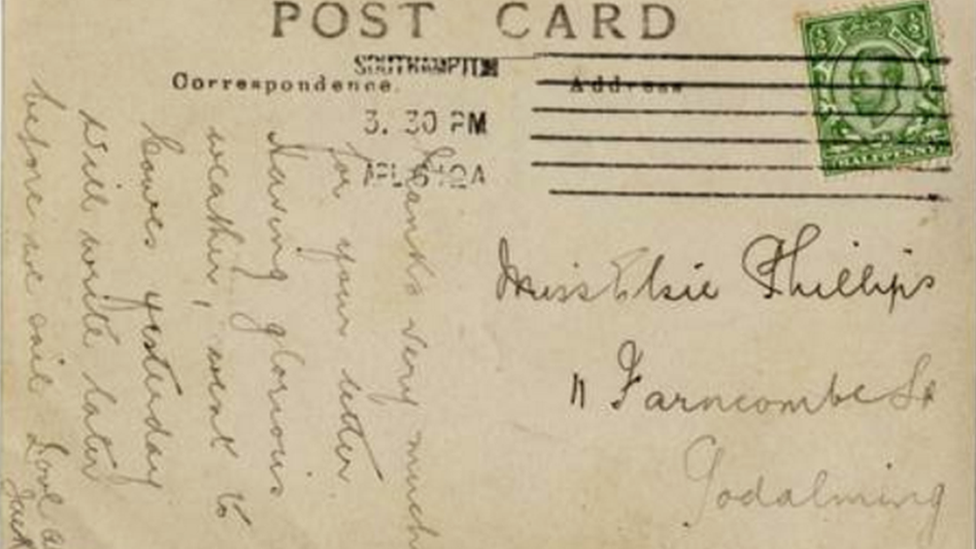 POST CARD
SOUTHAMPTON
Correspondence.
Address
3. 30 PM
APL 6 12A
HALFPENNY
Thanks very much
for your letter
Having glorious
weather, went to
Cowes yesterday
Will write later
before we sail Love
Jack
Miss Elsie Phillips
11 Farncombe St
Godalming